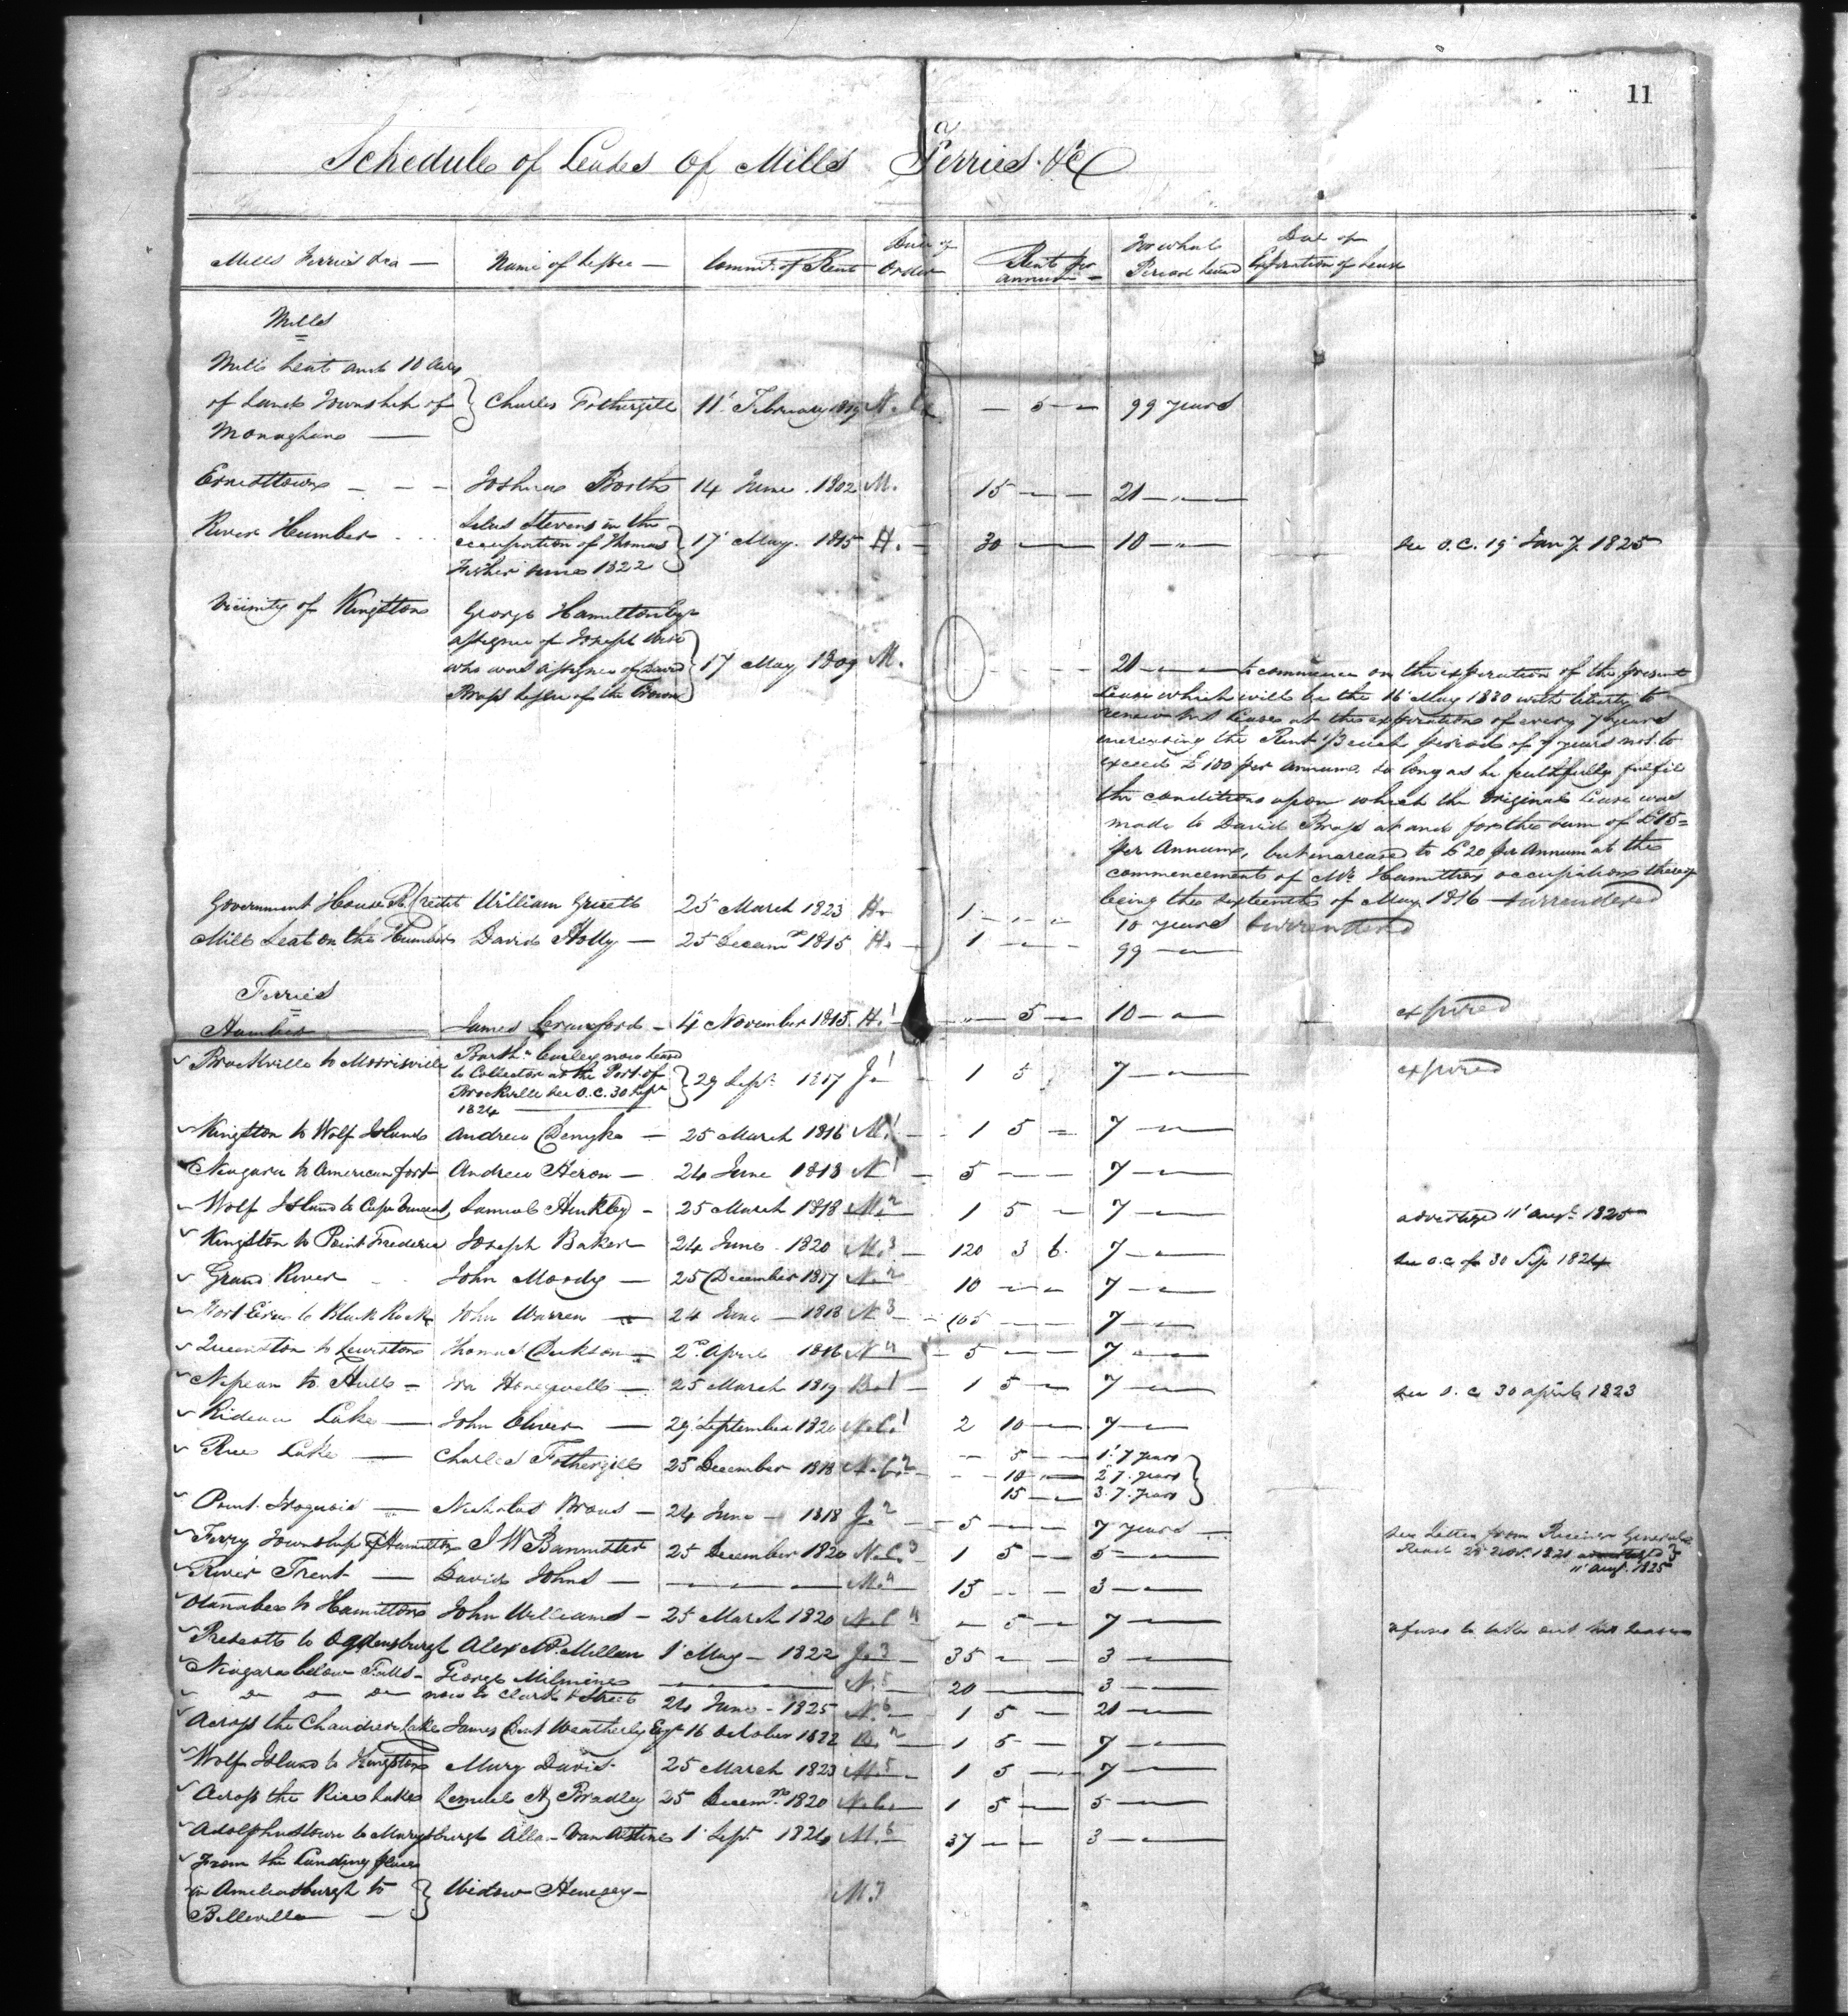 11
Schedule of Leases of Mills Ferries &c
Mills Ferries &ca — Name of Lessee — Commt. of Rent Date of Order Rent per annum — For what Period leased Date of Expiration of Lease
Mills
Mill Seat and 10 Acres
of Land Township of } Charles Fothergill 11' February 1819 N. — 5 — 99 years
Monaghan —
Ernesttown — — — Joshua Booth 14 June 1802 M. 15 — — 21 — " —
River Humber Silus Stevens in the
occupation of Thomas } 17' May 1815 H. — 30 — 10 — " see O.C. 19' Jany. 1825
Fisher since 1822
Vicinity of Kingston George Hamilton Esqr
assignee of Joseph
who was assignee of David } 17 May 1809 M.
Brass Lessee of the Crown
21 — " — to commence on the expiration of the present
Lease which will be the 16' May 1830 with liberty to
renew his Lease at the expiration of every 7 years
encreasing the Rent each period of 7 years not to
exceed £100 per annum, so long as he faithfully fulfil
the conditions upon which the original Lease was
made to David Brass at and for the sum of £15=
per Annum, but increased to £20 per Annum at the
commencement of Mr. Hamiltons occupation thereof
being the sixteenth of May 1816 — surrendered
Government House Rr. Credit William Grieett 25 March 1823 H. 1 — — 10 years surrendered
Mill Seat on the Humber David Holly — 25 Decemr. 1815 H. — 1 — — 99 — " —
Ferries
Humber — James Crawford — 4' November 1815 H.1 — " — 5 — 10 — " — expired
Brockville to Morrisville Barthw. Curley now leased
to Collector at the Port of } 29 Sept. 1817 J.1 — 1 5 7 — " — expired
Brockville see O.C. 30 Sepr
1824
Kingston to Wolf Island Andrew Denyke — 25 March 1816 M.1 — 1 5 — 7 — " —
Niagara to American fort Andrew Heron — 24 June 1818 N1 — 5 — — 7 — " —
Wolf Island to Cape Vincent Samuel Hinkley — 25 March 1818 M.2 1 5 — 7 — " — advertized 11' augt. 1825
Kingston to Point Frederic Joseph Baker — 24 June 1820 M.3 — 120 3 6 7 — " — see O.C. of 30 Sep 1824
Grand River John Moody — 25 December 1817 N.2 10 — — 7 — " —
Fort Erie to Black Rock John Warren — 24 June — 1818 N3 — 105 — — 7 — " —
Queenston to Lewiston Thomas Dickson — 2nd. April 1816 N4 — 5 — — 7 — " —
Nepean to Hull — Ira Honeywell — 25 March 1819 B.1 — 1 5 — 7 — " — see O.C. 30 april 1823
Rideau Lake — John Oliver — 29 September 1820 N.C.1 2 10 — 7 — " —
Rice Lake — Charles Fothergill 25 December 1818 N.C.2 — 5 — 1' 7 years
— 10 — 2 7 years }
15 — 3 7 years
Point Iroquois — Nicholas Brous — 24 June — 1818 J.2 — 5 — — 7 years —
Ferry Township of Hamilton J W Bannister 25 December 1820 N.C.3 — 1 5 — 5 — " — see Letter from Receiver General
Read 25 Novr. 1821 advertized
11' augt. 1825
River Trent — David Johns — — — M.4 15 — — 3 — " —
Otanabee to Hamilton John Williams — 25 March 1820 N.C4 — 5 — 7 — " — refuses to take out his Lease
Prescott to Ogdensburgh Alexr. McMillan 1' May — 1822 J.3 35 — — 3 — " —
Niagara below Falls — George Milmine — N.5 20 — 3 — " —
Do Do Do now to Clark & Street 24 June — 1825 N.6 1 5 — 21 — " —
Across the Chaudiere Lake James Bent Weatherley Esqr 16 October 1822 B.2 — 1 5 — 7 — " —
Wolf Island to Kingston Mary Davis 25 March 1823 M.5 — 1 5 — 7 — " —
Across the Rice Lake Lemuel A Bradley 25 Decemr. 1820 N.C. — 1 5 — 5 — " —
Adolphustown to Marysburgh Alla. Van Alstine 1' Sept. 1824 M.6 — 37 — — 3 — " —
From the Landing place
in Ameliasburgh to } Widow Hennesy — M7
Belleville —